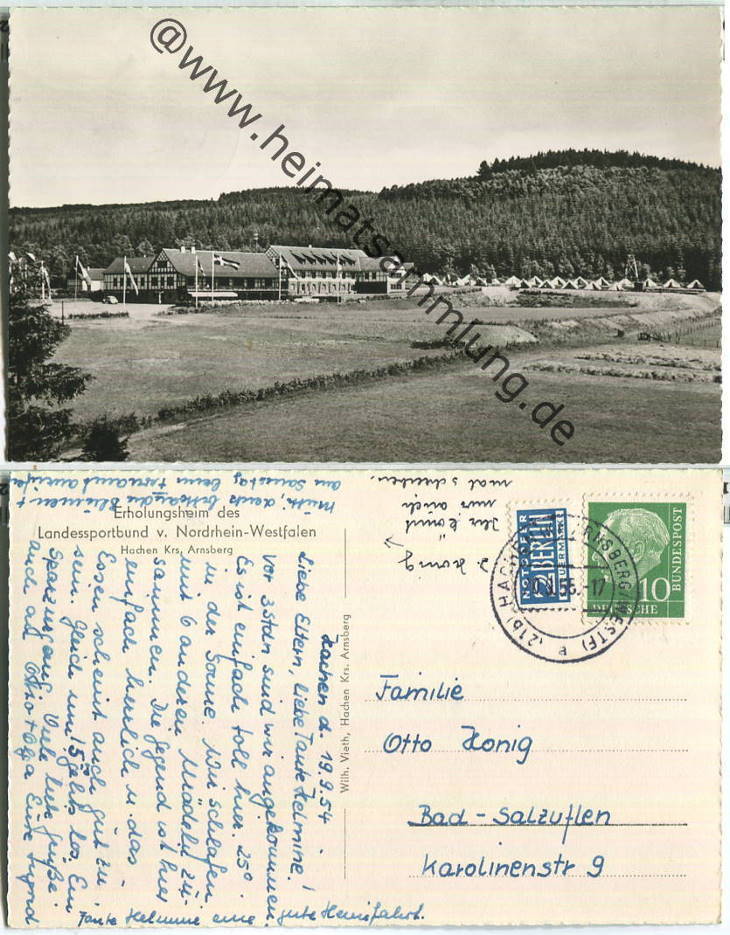 @www.heimatsammlung.de
Erholungsheim des
Landessportbund v. Nordrhein-Westfalen
Hachen Krs. Arnsberg
Wilh. Vieth, Hachen Krs. Arnsberg
Hachen d. 19.9.54.
Liebe Eltern, liebe Tante Helmine!
Vor 3 Stdn sind wir angekommen.
Es ist einfach toll hier. 25°
in der Sonne. Wir schlafen
mit 6 anderen Mädeln zu-
sammen. Die Gegend ist hier
einfach herrlich u. das
Essen scheint auch gut zu
sein. Gleich um 15 geht's los. Ein
Spaziergang. Viele liebe Grüße
auch an Otto + Olga Eure Ingrid
Tante Helmine eine gute Heimfahrt.
Mutti, denk bitte an die Blumen +
am Samstag beim
Ihr könnt
mir auch
mal schreiben.
NOTOPFER
2 BERLIN
STEUERMARKE
DEUTSCHE
BUNDESPOST
10
(21b) HACHEN ARNSBERG (WESTF)
a
Familie
Otto König
Bad-Salzuflen
Karolinenstr 9